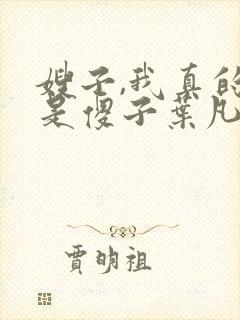 嫂子,我真的
是傻子葉凡
賈明祖